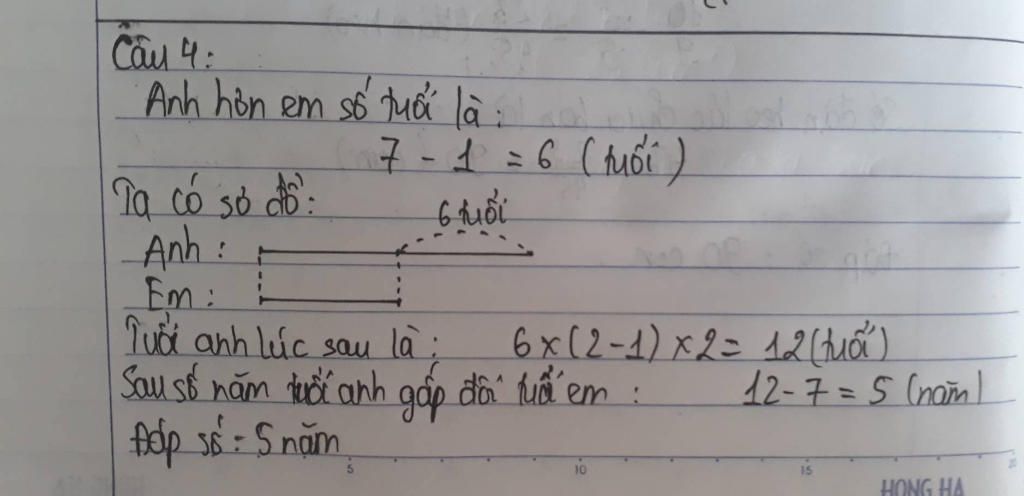 Câu 4:
Anh hơn em số tuổi là:
7 - 1 = 6 (tuổi)
Ta có sơ đồ:
6 tuổi
Anh :
Em :
Tuổi anh lúc sau là: 6 x (2 - 1) x 2 = 12 (tuổi)
Sau số năm tuổi anh gấp đôi tuổi em : 12 - 7 = 5 (năm)
Đáp số : 5 năm
5 10 15 20
HONG HA